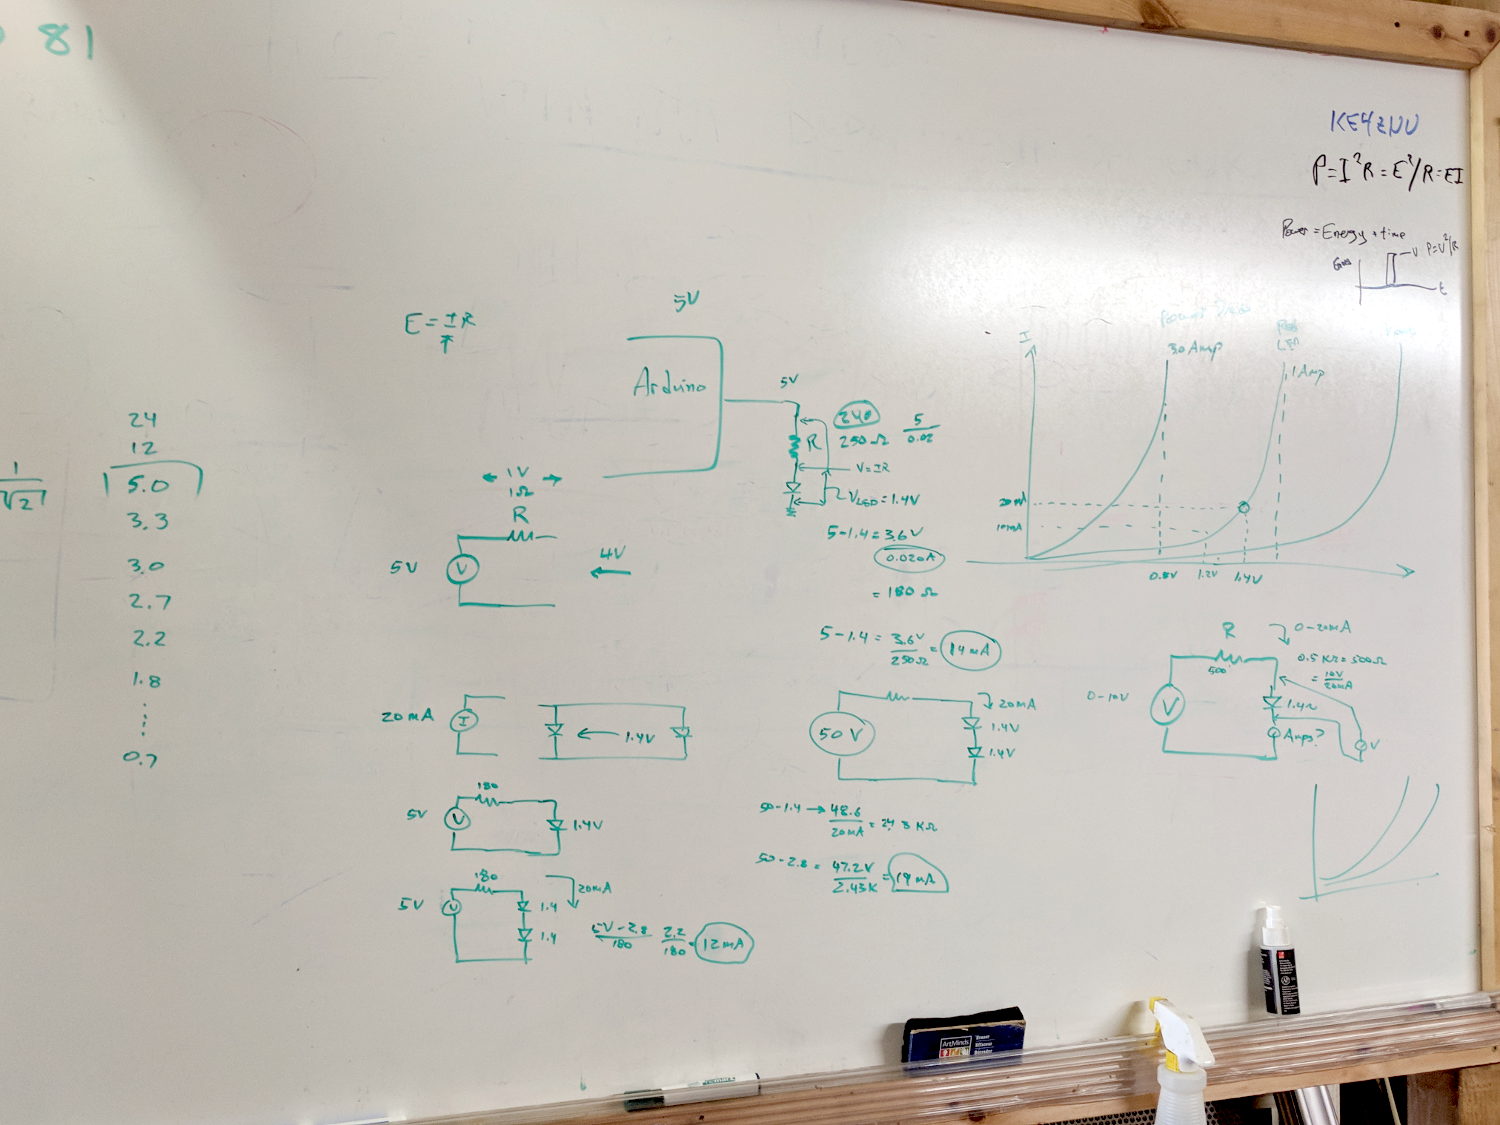 81
KE4ZNU
P=I²R=E²/R=EI
Power = Energy + time
V P=V²/R
t
5V
E=IR
Arduino
5V
240
250Ω
5
0.02
R
V=IR
VLED=1.4V
5-1.4=3.6V
0.020A
= 180 Ω
5-1.4 = 3.6V
250Ω
= 14mA
I
30 Amp
LED
1 Amp
20 mA
10mA
0.8V 1.2V 1.4V
24
12
5.0
3.3
3.0
2.7
2.2
1.8
0.7
1
√2
1V
1Ω
R
5V
V
4V
20mA
I
1.4V
180
5V
V
1.4V
180
5V
V
1.4
1.4
20mA
5V-2.8
180
2.2
180
= 12mA
50V
20mA
1.4V
1.4V
50-1.4 → 48.6
20mA
50-2.8 = 47.2V
2.43K
= 19mA
R
500
0-20mA
0.5KΩ=500Ω
= 10V
20mA
0-10V
V
Amps?
V
ArtMinds
Eraser